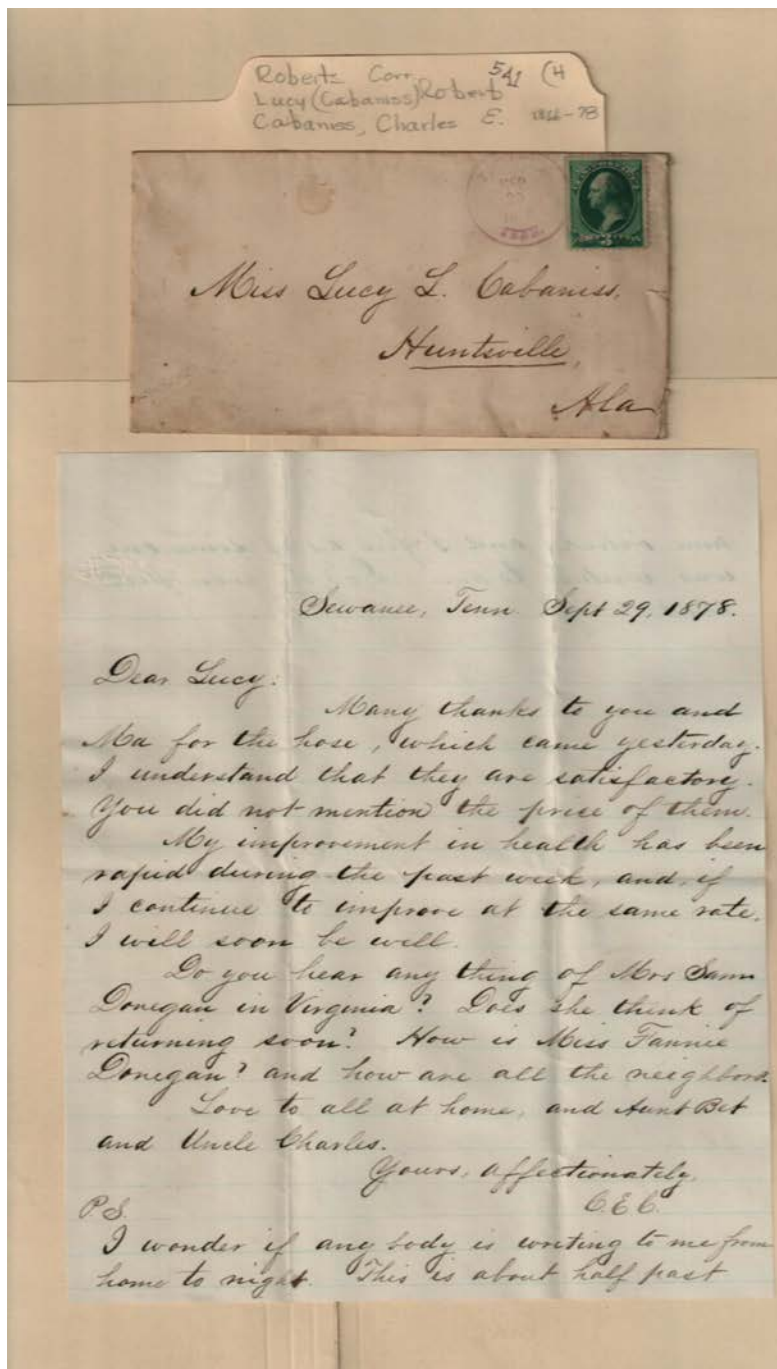 Roberts Corr. 541 (4
Lucy (Cabaniss) Roberts
Cabaniss, Charles E. -78
Miss Lucy L. Cabaniss,
Huntsville,
Ala
Sewanee, Tenn. Sept 29, 1878.
Dear Lucy:
Many thanks to you and
Ma for the hose, which came yesterday.
I understand that they are satisfactory.
You did not mention the price of them.
My improvement in health has been
rapid during the past week, and, if
I continue to improve at the same rate,
I will soon be well.
Do you hear any thing of Mrs Sam
Donegan in Virginia? Does she think of
returning soon? How is Miss Fannie
Donegan? and how are all the neighbors.
Love to all at home, and Aunt Bet
and Uncle Charles.
Yours, affectionately,
C.E.C.
P.S.
I wonder if any body is writing to me from
home to night. This is about half past